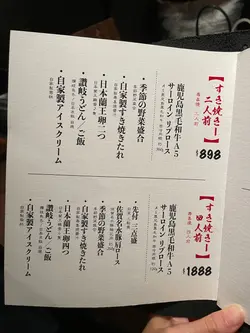 【すき焼きー
二人前
$898
鹿児島黒毛和牛A5
サーロイン リブロース
・季節の野菜盛合
・自家製すき焼きたれ
・日本蘭王卵二つ
・讃岐うどん/ご飯
・自家製アイスクリーム
【すき焼きー
四人前
$1888
・先付 三点盛
鹿児島黒毛和牛A5
サーロイン リブロース
・佐賀名水豚肩ロース
・季節の野菜盛合
・自家製すき焼きたれ
・日本蘭王卵四つ
・讃岐うどん/ご飯
・自家製アイスクリーム